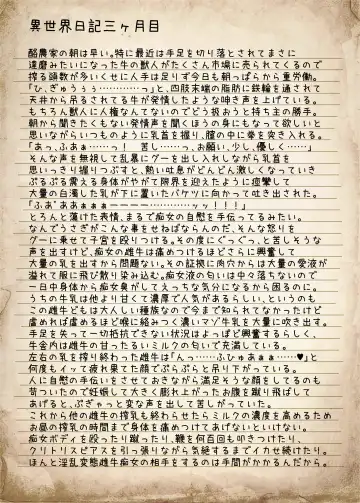 異世界日記三ヶ月目
酪農家の朝は早い。特に最近は手足を切り落とされてまさに
達磨みたいになった牛の獣人がたくさん市場に売られてくるので
搾る頭数が多いくせに人手は足りず今日も朝っぱらから重労働。
「ひ、ぎゅうぅぅ…………っ」と、四肢末端の脂肪に鉄輪を通されて
天井から吊るされてる牛が発情したような呻き声を上げている。
もちろん獣人に人権なんてないのでどう扱おうと持ち主の勝手。
朝から聞きたくもない発情声を聞くほうの身にもなって欲しいと
思いながらいつものように乳首を握り、膣の中に拳を突き入れる。
「あっ、ふああ……っ!　苦し……っ、お願い、少し、優しく……」
そんな声を無視して乱暴にグーを出し入れしながら乳首を
思いっきり握りつぶすと、熱い吐息がどんどん激しくなっていき
ぶるぶる震える身体がやがて限界を迎えたように痙攣して
大量の白濁した乳が下に置いたバケツに向かって吐き出された。
「ふあ゛ああぁぁぁーーーー…………ッッ!!!」
とろんと蕩けた表情、まるで痴女の自慰を手伝ってるみたい。
なんでうさぎがこんな事をせねばならんのだ、そんな怒りを
グーに乗せて子宮を殴りつける。その度にぐっぐっ、と苦しそうな
声を出すけど、痴女の雌牛は痛めつけるほどさらに興奮して
大量の乳を出すから問題ない。その証拠に肉穴からは大量の愛液が
溢れて服に飛び散り染み込む。痴女液の匂いは中々落ちないので
一日中身体から痴女臭がしてえっちな気分になるから困るのに。
うちの牛乳は他より甘くて濃厚で人気があるらしい、というのも
この雌牛どもは大人しい種族なので今まで知られてなかったけど
虐めれば虐めるほど喉に絡みつく濃いマゾ牛乳を大量に吹き出す。
手足を失って一切抵抗できない状況はよっぽど興奮するらしく、
牛舎内は雌牛の甘ったるいミルクの匂いで充満している。
左右の乳を搾り終わった雌牛は「んっ……ふひゅあぁぁ……♥」と
何度もイッて疲れ果てた顔でぷらぷらと吊り下がっている。
人に自慰の手伝いをさせておきながら満足そうな顔をしてるのも
苛ついたので妊娠して大きく膨れ上がったお腹を蹴り飛ばして
あげると、ぶぎゅっと変な声を出して苦しがっていた。
これから他の雌牛の搾乳も終わらせたらミルクの濃度を高めるため
お昼の搾乳の時間まで身体を痛めつけてあげないといけない。
痴女ボディを殴ったり蹴ったり、鞭を何百回も叩きつけたり、
クリトリスピアスを引っ張りながら気絶するまでイカせ続けたり。
ほんと淫乱変態雌牛痴女の相手をするのは手間がかかるんだから。